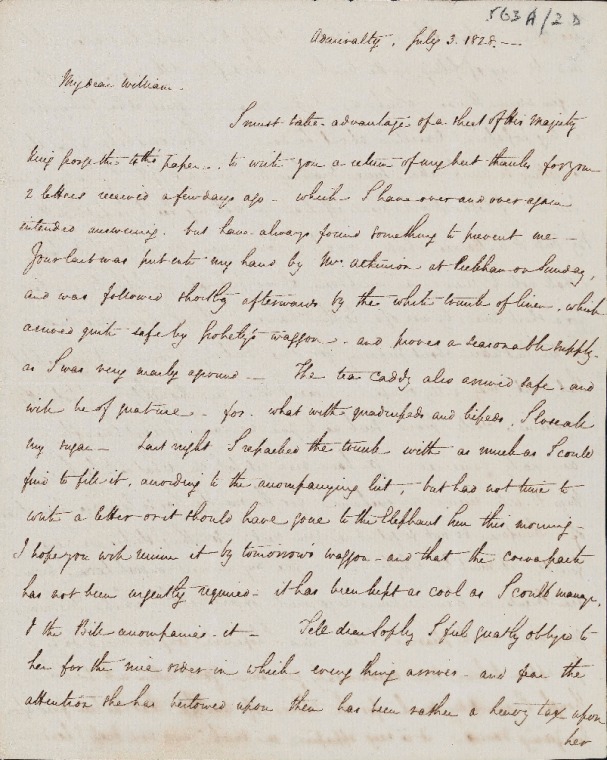 563 A/2 D
Admiralty. July 3. 1828.
My dear William.
I must take advantage of a sheet of His Majesty
King George the 4th's paper to write you a return of my best thanks for your
2 letters received a few days ago - which I have over and over again
intended answering. but have always found something to prevent me -
Your last was put into my hand by Mr. Atkinson at Peckham on Sunday,
and was followed shortly afterwards by the white trunk of linen. which
arrived quite safe by waggon - and proves a seasonable supply.
as I was very nearly aground - The tea caddy also arrived safe and
will be of great use - for. what with quadrupeds and bipeds, I lose all
my sugar - Last night I repacked the trunk with as much as I could
find to fill it, according to the accompanying list, but had not time to
write a letter or it should have gone to the Elephant Inn this morning -
I hope you will receive it by tomorrow's waggon - and that the cocoa paste
has not been urgently required - it has been kept as cool as I could manage.
& the Bill accompanies it - Tell dear Sophy I feel greatly obliged to
her for the nice order in which every thing arrives - and fear the
attention she has bestowed upon them has been rather a heavy tax upon
her